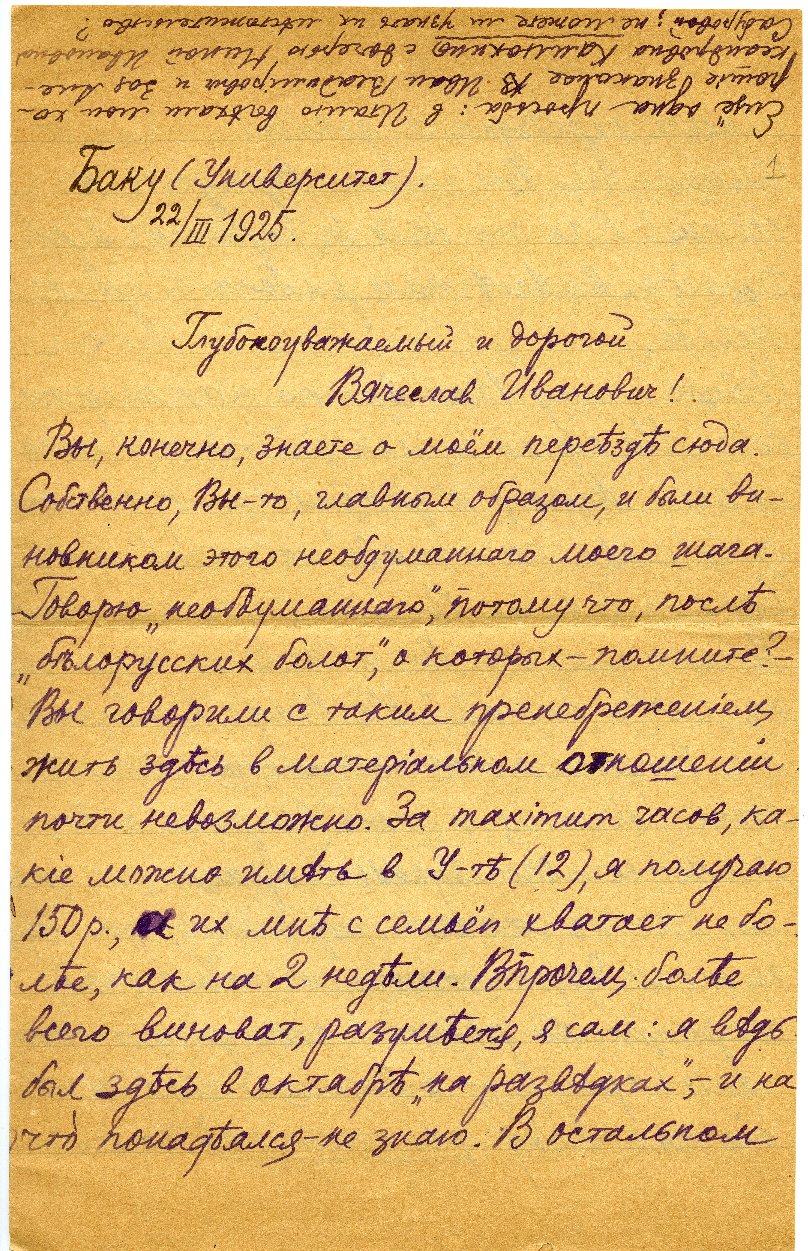 Ещё одна просьба: в Италію выѣхали мои хо-
рошіе знакомые Иван Владимірович и Зоя Але-
ксандровна Калюжино с дочерью Ниной Ивановной
Сабуровой; не можете ли узнать их мѣстожительство?
1
Баку (Университет).
22/III 1925.
Глубокоуважаемый и дорогой
Вячеслав Иванович!
Вы, конечно, знаете о моём переѣздѣ сюда.
Собственно, Вы-то, главным образом, и были ви-
новником этого необдуманнаго моего шага.
Говорю „необдуманнаго", потому что, послѣ
„бѣлорусских болот", о которых – помните? –
Вы говорили с таким пренебреженіем,
жить здѣсь в матеріальном отношеніи
почти невозможно. За maximum часов, ка-
кіе можно имѣть в У-тѣ (12), я получаю
150 р., а их мнѣ с семьёй хватает не бо-
лѣе, как на 2 недѣли. Впрочем, болѣе
всего виноват, разумѣется, я сам: я вѣдь
был здѣсь в октябрѣ „на развѣдках", – и на
что понадѣялся – не знаю. В остальном